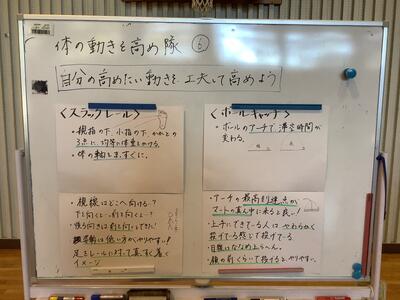 体の動きを高め隊 ⑥
自分の高めたい動きを工夫して高めよう
<スラックレール>
・拇指の下、小指の下、かかとの
3点に均等に体重をかける。
・体の軸をまっすぐに。
<ボールキャッチ>
・ボールのアーチで滞空時間が
変わる。
・視線はどこへ向ける？
下を向くと… 前を向くと…
・つま先の向きは前を向
は低い方がやりやすい！
足とレールに対して真っすぐ着く
イメージ
・アーチの最高到達点が
マットの真ん中に来ると良い！
・上手にできてる人は やわらかく
投げてる感じで投げてる
・目線はななめ上らへん。
・顔の前くらいで投げると、やりやすい。